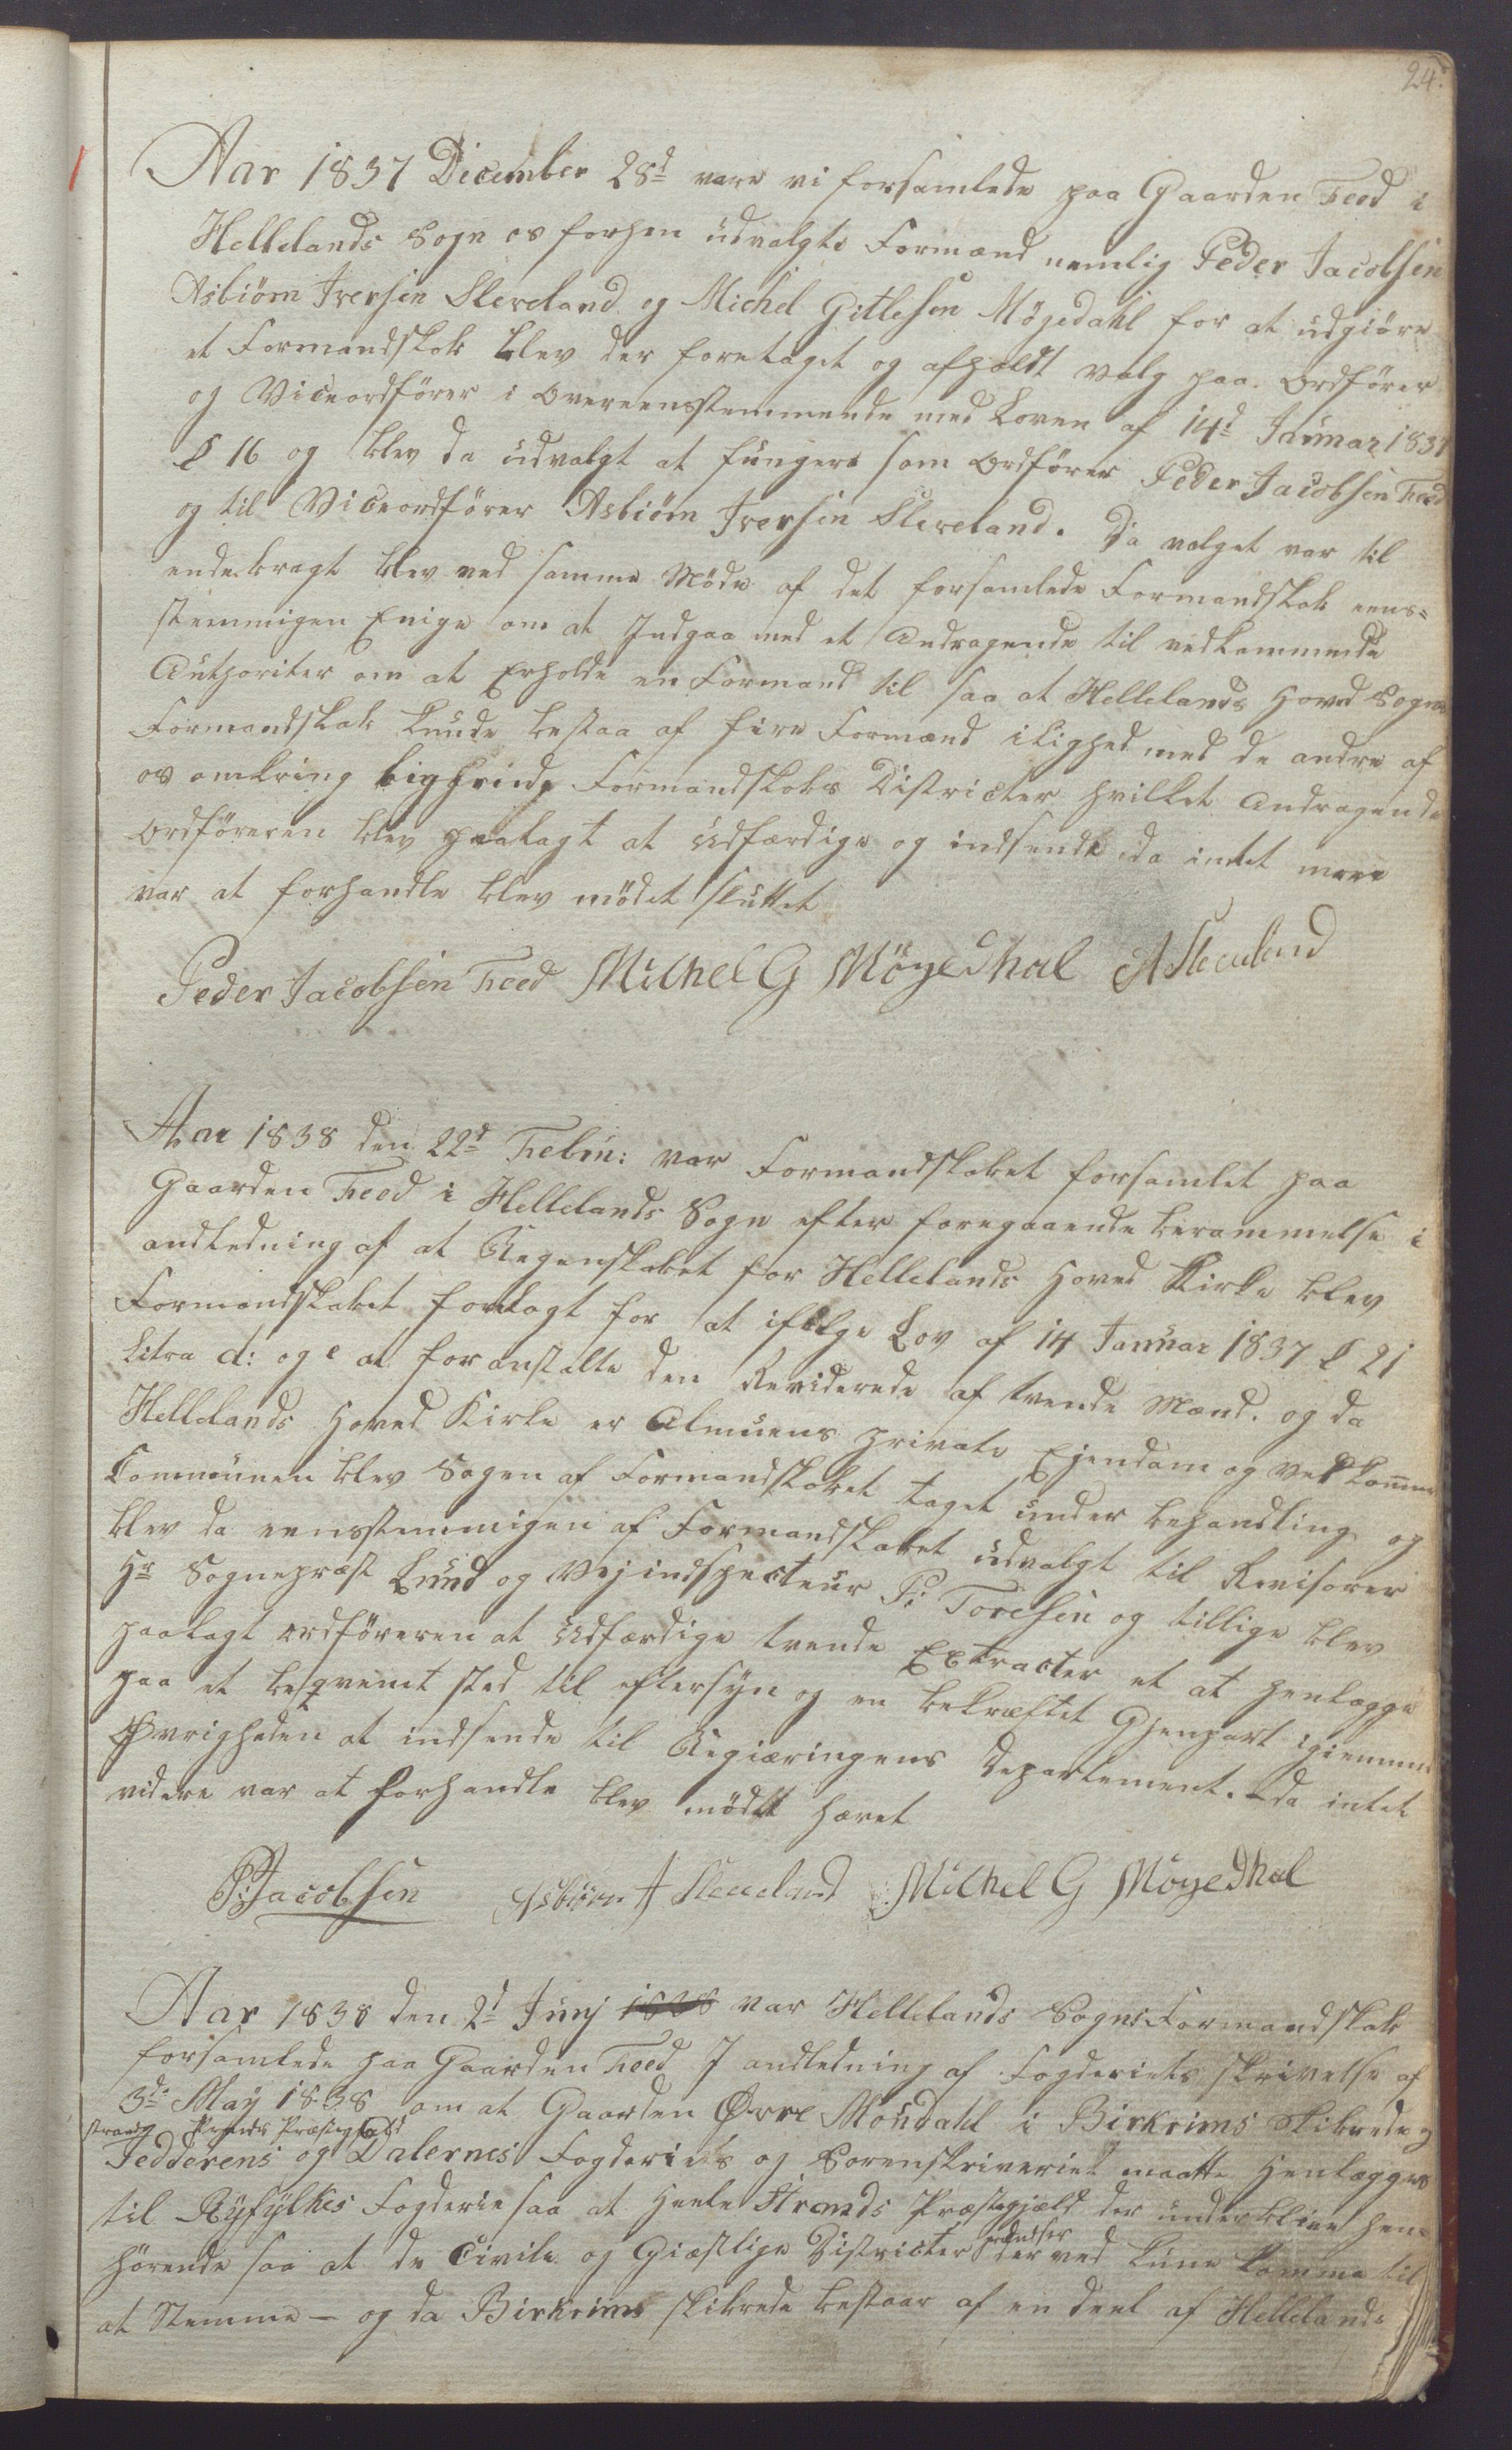 24.
Aar 1837 December 28d vare vi forsamlede paa Gaarden Feed i
Hellelands Sogn os forhen udvalgte Formænd nemlig Peder Jacobsen
Asbiørn Iversen Sleveland og Michel Gitlesen Møgedahl for at udgiøre
et Formandskab blev der foretaget og afholdt valg paa Ordfører
og Viceordfører i Overeensstemmende med Loven af 14d Januar 1837
§ 16 og blev da udvalgt at fungere som Ordfører Peder Jacobsen Feed
og til Viceordfører Asbiørn Iversen Sleveland. Da valget var til
endebragt blev ved samme Møde af det forsamlede Formandskab eens-
stemmigen Enige om at Indgaa med et Andragende til vedkommende
Authoriter om at Erholde en Formand til saa at Hellelands Hoved Sogns
Formandskab kunde bestaa af fire Formænd ilighed med de andre af
os omkring Formandskabs Districter hvilket Andragende
Ordføreren blev paalagt at Udfærdige og indsende da intet mere
var at forhandle blev mødet sluttet
Peder Jacobsen Feed Michel G Møgedhal A Sleveland
Aar 1838 den 22d Febru: var Formandskabet forsamlet paa
Gaarden Feed i Hellelands Sogn efter foregaaende berammelse i
andledning af at Regenskabet for Hellelands Hoved Kirke blev
Formandskabet forelagt for at ifølge Lov af 14 Januar 1837 § 21
Litra d: og e at foranstalte den Reviderede af tvende Mænd. og da
Hellelands Hoved Kirke er Almuens private Ejendom og vedkomme
Communen blev Sagen af Formandskabet taget under behandling og
blev da eensstemmigen af Formandskabet udvalgt til Revisorer
Hr Sognepræst Lund og Vejindspecteur P: Toresen og tillige blev
paalagt ordføreren at Udfærdige tvende Extracter et at henlægge
paa et beqvemt sted til eftersyn og en bekræftet Gjenpart igiennem
Øvrigheden at indsende til Regiæringens Departement. da intet
videre var at forhandle blev mødet hævet
P: Jacobsen Asbiørn I Sleveland Michel G Møgedhal
Aar 1838 den 2d Junj 1838 var Hellelands Sogns Formandskab
forsamlede paa Gaarden Feed I andledning af Fogderiets skrivelse af
3d May 1838 om at Gaarden Øvre Moudahl i Birkrims Skibrede
Strands Præstegjæld
Jedderens og Dalernes Fogderiets og Sorenskriveriet maatte Henlægges
til Ryfylkes Fogderie saa at Heele Strands Præstegjæld der under blive hen-
hørende saa at de Civile og Giæstlige Districter grændser der ved kune komme til
at Stemme – og da Birkrims skibrede bestaar af en deel af Hellelands